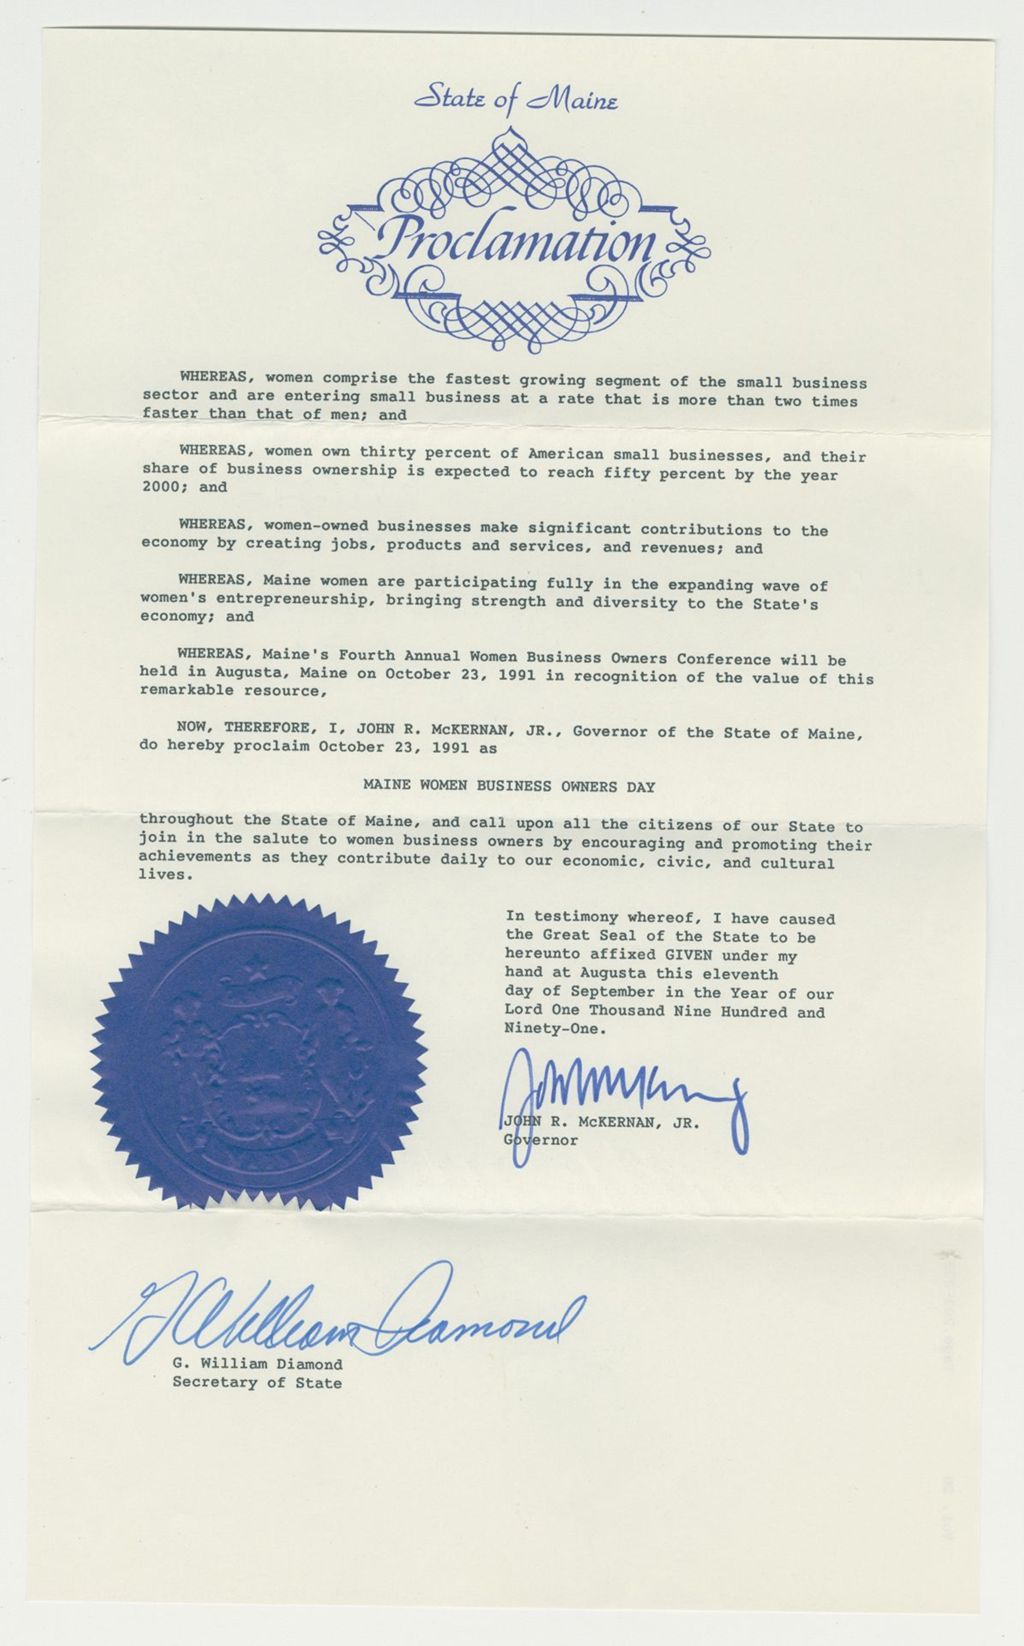 State of Maine
Proclamation
WHEREAS, women comprise the fastest growing segment of the small business
sector and are entering small business at a rate that is more than two times
faster than that of men; and
WHEREAS, women own thirty percent of American small businesses, and their
share of business ownership is expected to reach fifty percent by the year
2000; and
WHEREAS, women-owned businesses make significant contributions to the
economy by creating jobs, products and services, and revenues; and
WHEREAS, Maine women are participating fully in the expanding wave of
women's entrepreneurship, bringing strength and diversity to the State's
economy; and
WHEREAS, Maine's Fourth Annual Women Business Owners Conference will be
held in Augusta, Maine on October 23, 1991 in recognition of the value of this
remarkable resource,
NOW, THEREFORE, I, JOHN R. McKERNAN, JR., Governor of the State of Maine,
do hereby proclaim October 23, 1991 as
MAINE WOMEN BUSINESS OWNERS DAY
throughout the State of Maine, and call upon all the citizens of our State to
join in the salute to women business owners by encouraging and promoting their
achievements as they contribute daily to our economic, civic, and cultural
lives.
In testimony whereof, I have caused
the Great Seal of the State to be
hereunto affixed GIVEN under my
hand at Augusta this eleventh
day of September in the Year of our
Lord One Thousand Nine Hundred and
Ninety-One.
JOHN R. McKERNAN, JR.
Governor
G William Diamond
G. William Diamond
Secretary of State